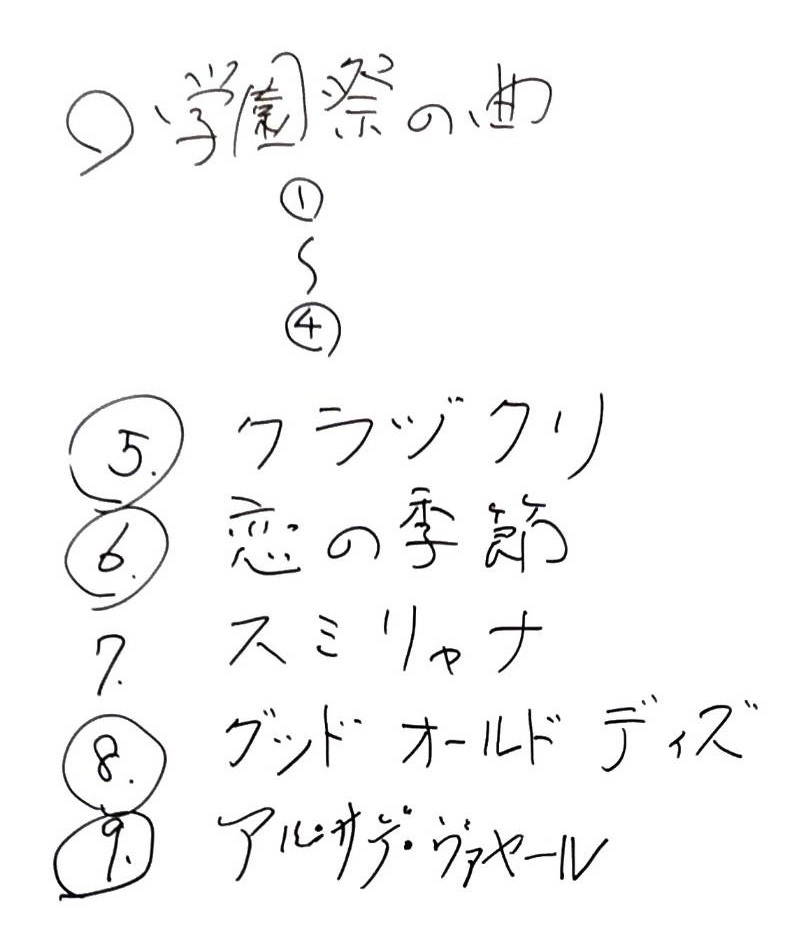 ○ 学園祭の曲
①
〜
④
5. クラヅクリ
6. 恋の季節
7. スミリャナ
8. グッド オールド ディズ
9. アル・サデ・ヴァヤール